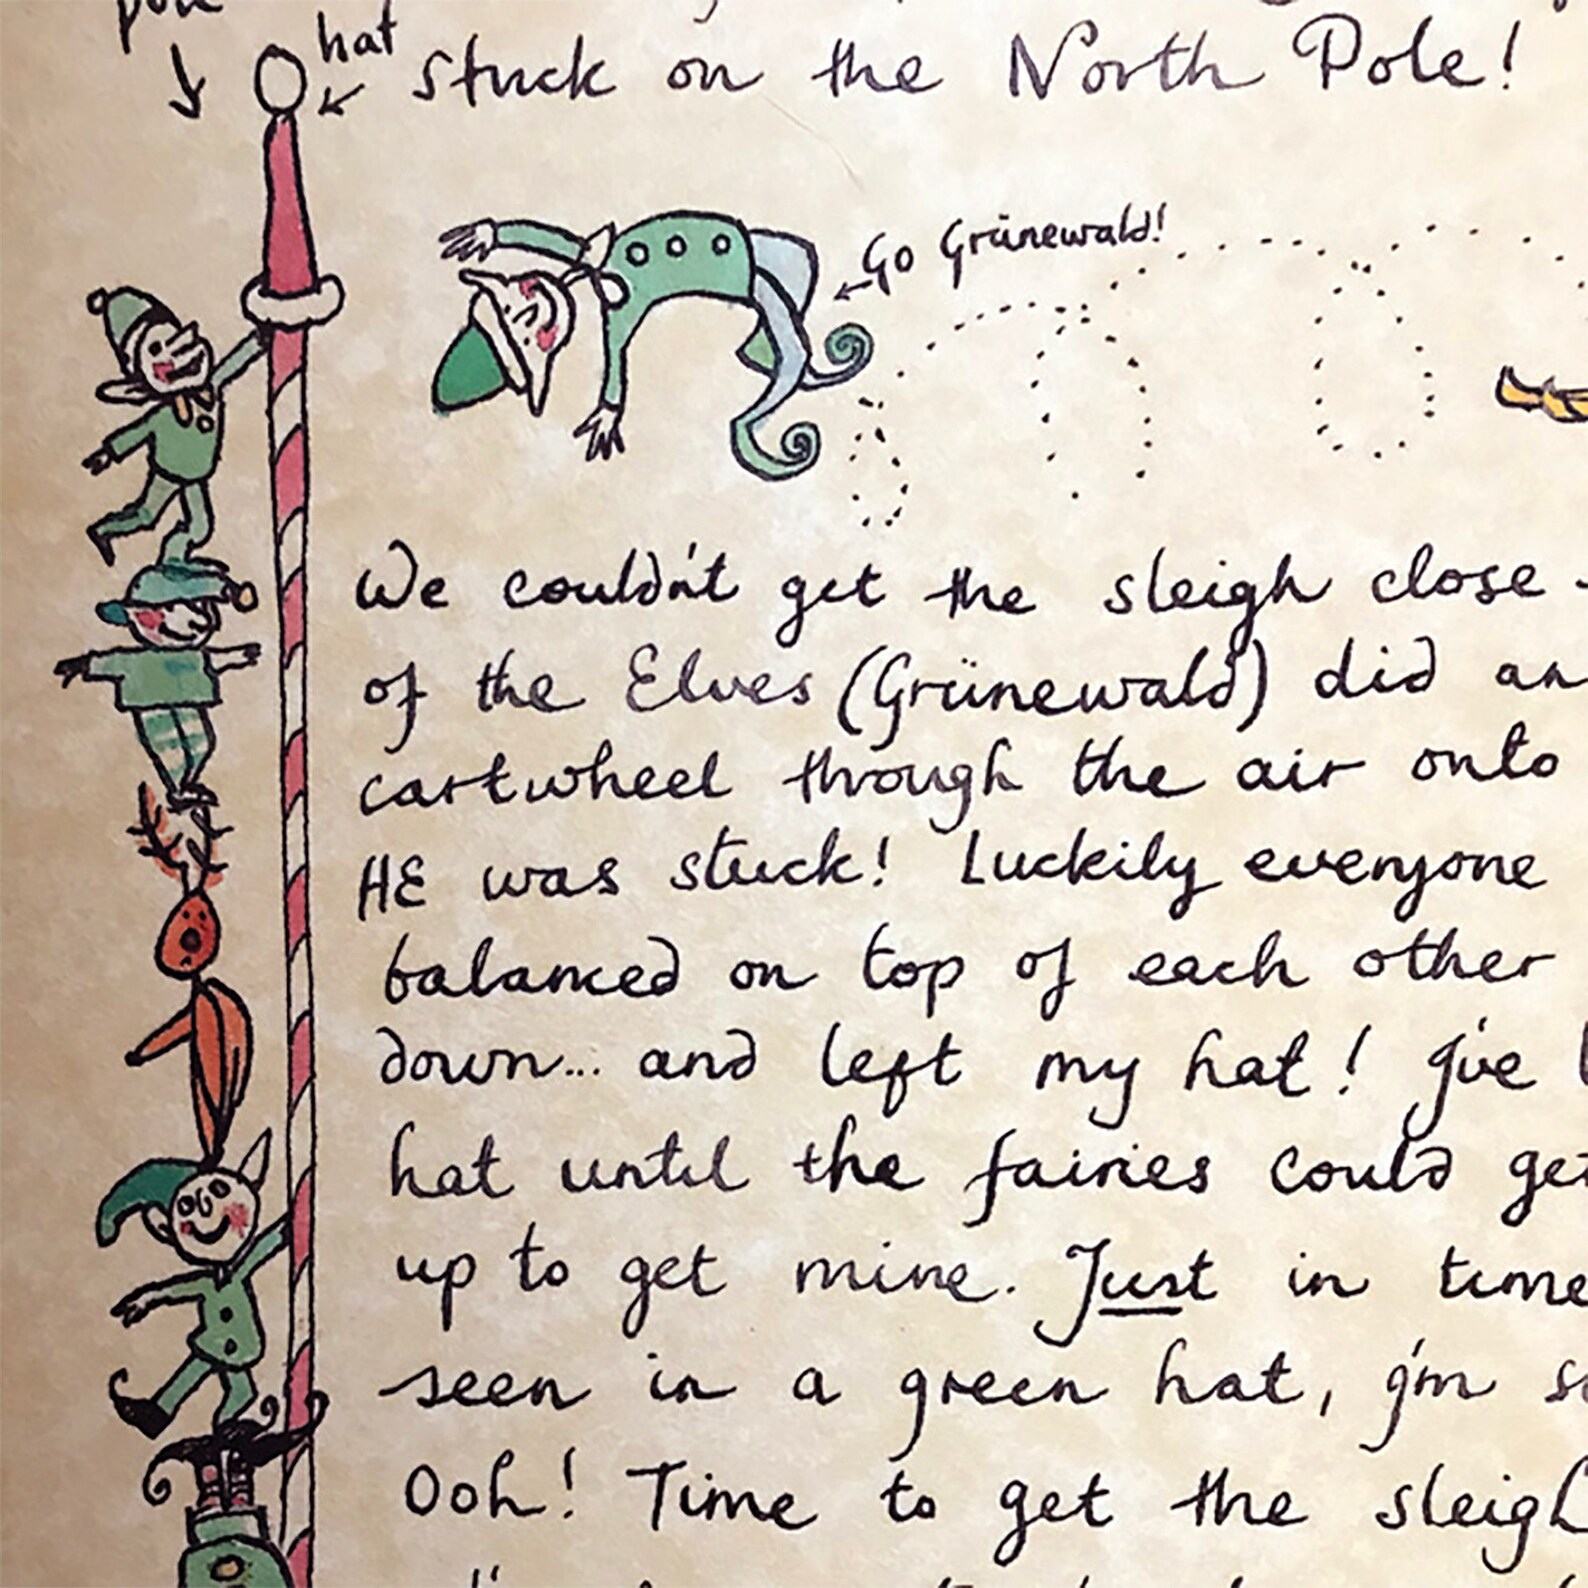 pole
hat
stuck on the North Pole!
Go Grünewald!
We couldn't get the sleigh close
of the Elves (Grünewald) did an
cartwheel through the air onto
HE was stuck! Luckily everyone
balanced on top of each other
down... and left my hat! I've
hat until the fairies could get
up to get mine. Just in time
seen in a green hat, I'm so
Ooh! Time to get the sleigh